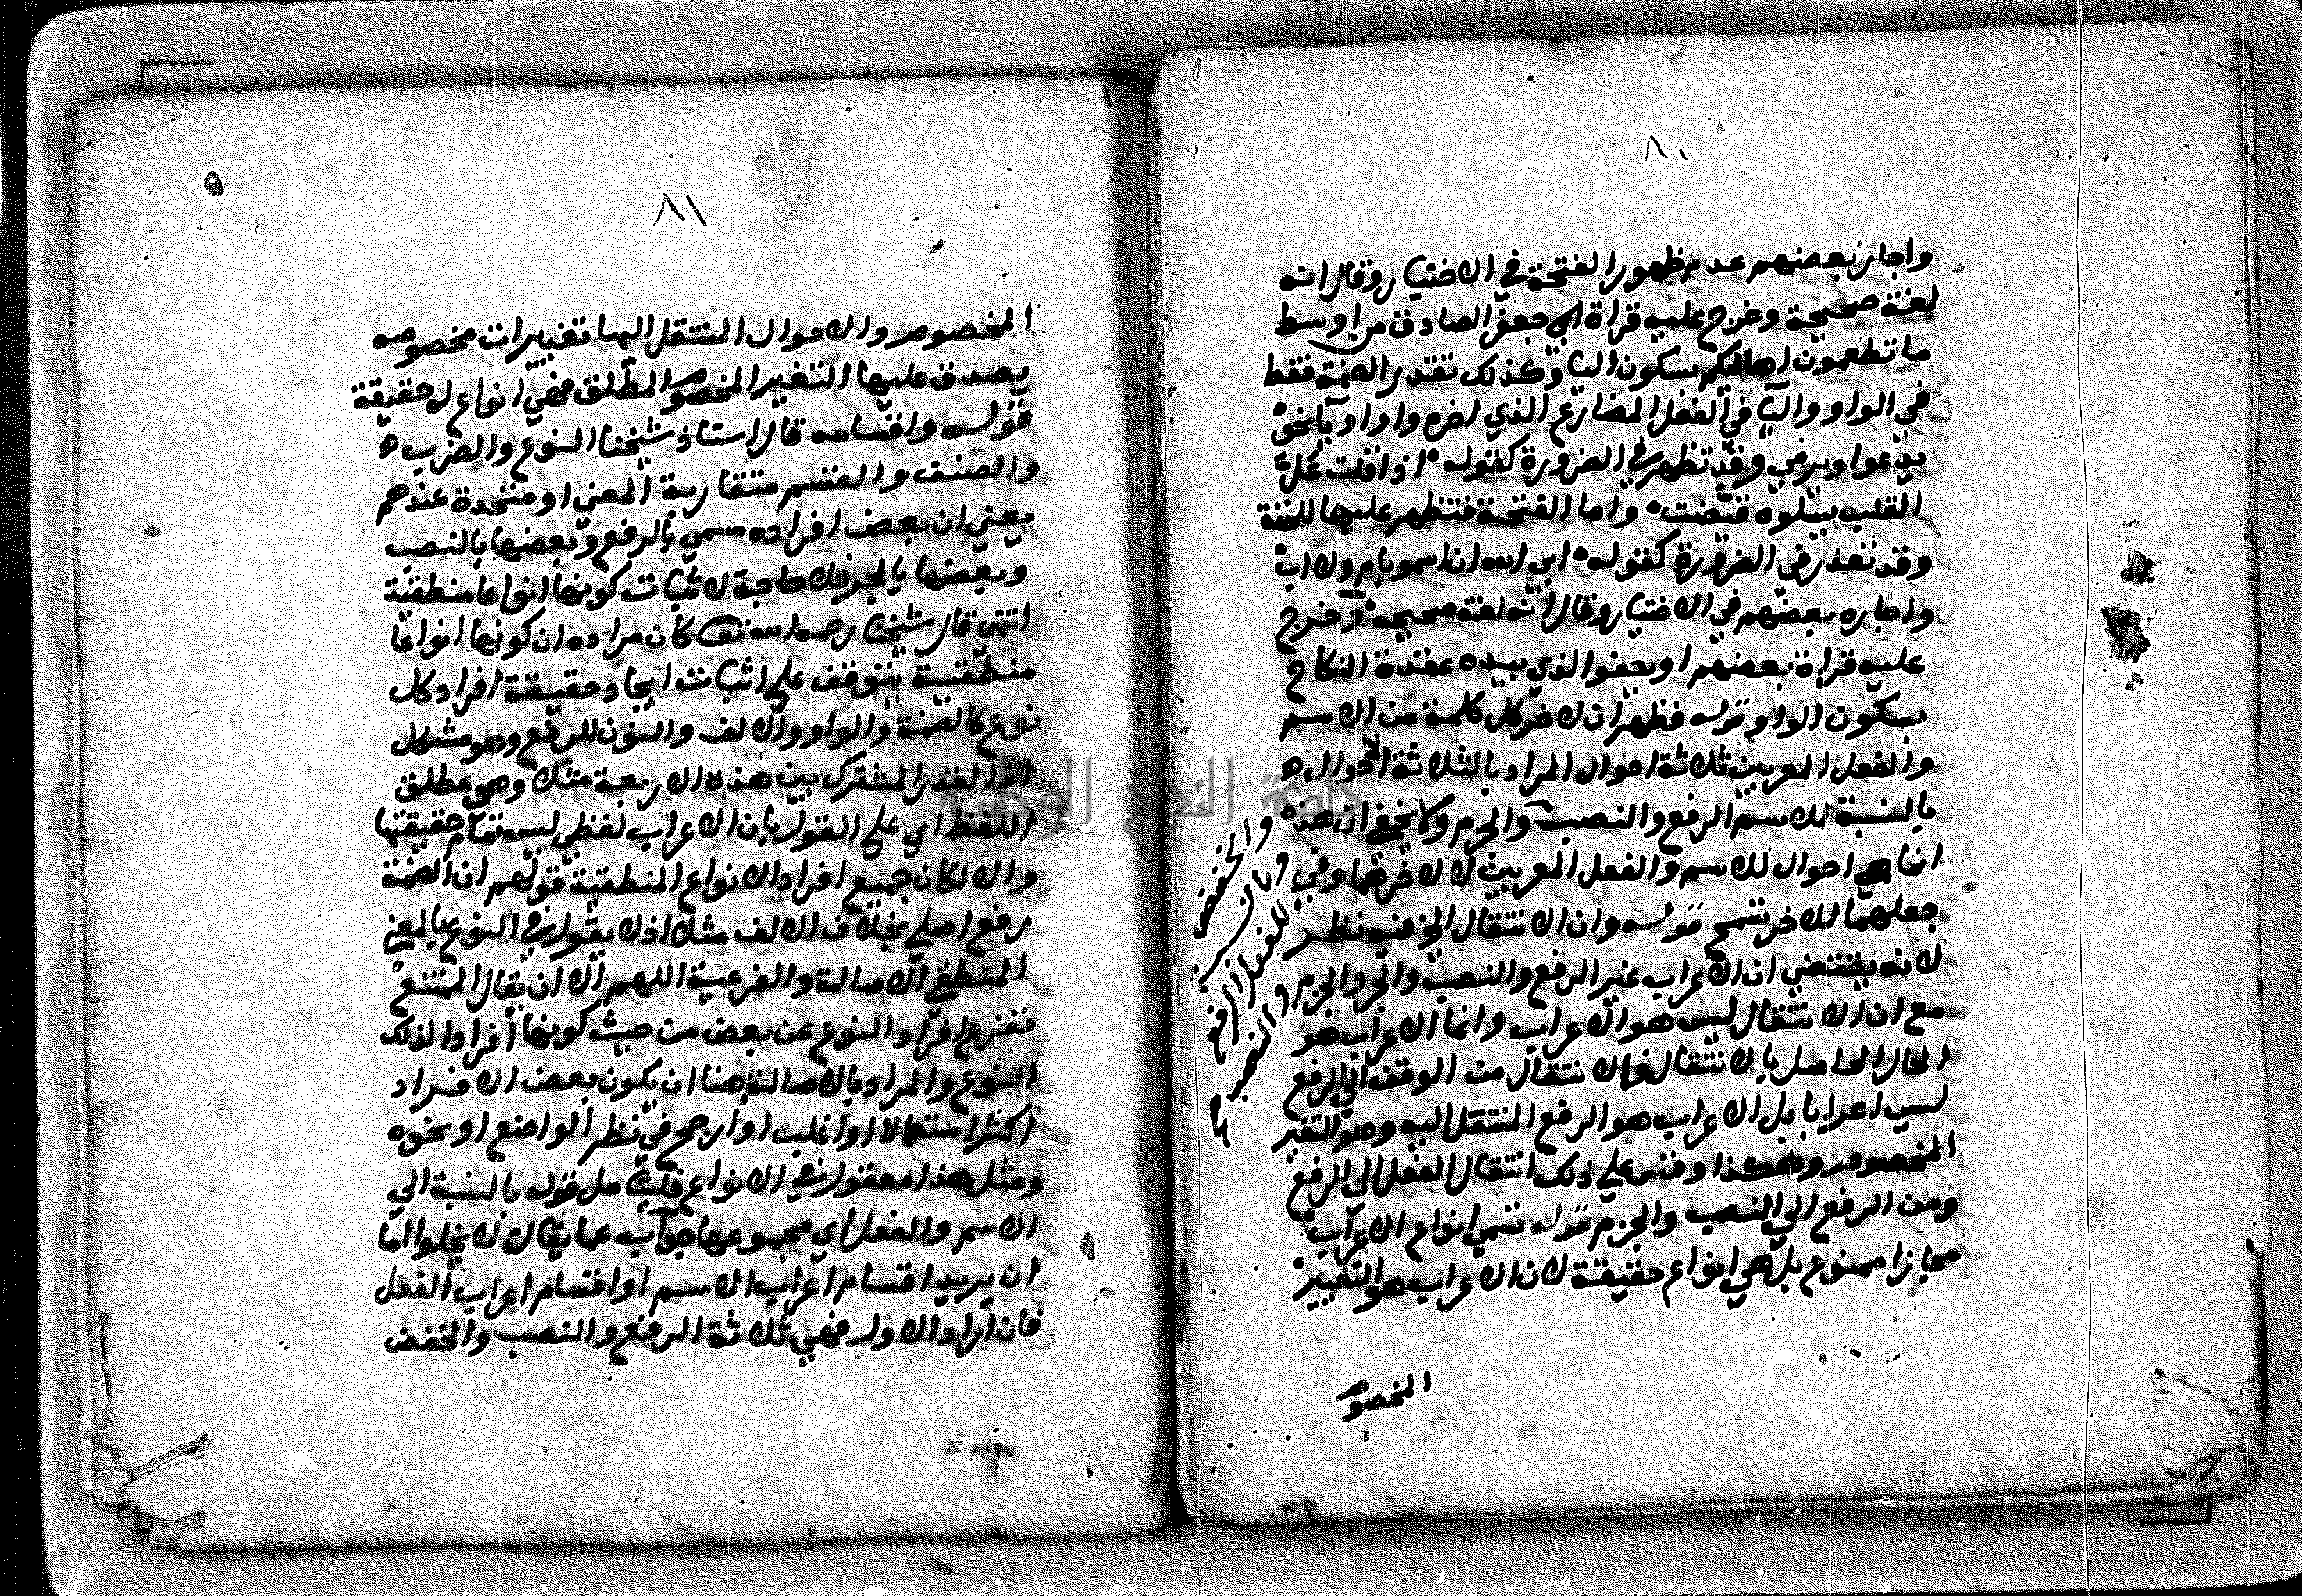 ٨٠
واجاز بعضهم عدم ظهور الفتحة في الاختيار وقال انه
لغة صحيحة وخرج عليه قراة ابي جعفر الصادق من اوسط
ما تطعمون اهاليكم بسكون اليا وكذلك تقدر الضمة فقط
في الواو واليا في الفعل المضارع الذي اخره واوا او يا نحو
يدعوا ويرمي وقد تظهر في الضرورة كقوله اذا قلت عل
القلب يسلوه قيضت واما الفتحة فتظهر عليها للخفة
وقد تقدر في الضرورة كقوله ابى الله ان اسمو بام ولا اب
واجازه بعضهم في الاختيار وقال انه لغة صحيحة وخرج
عليه قراة بعضهم او يعفو الذي بيده عقدة النكاح
بسكون الواو قوله فظهر ان لاخر كل كلمة من الاسم
والفعل المعربين ثلاثة احوال المراد بالثلاثة الاحوال
بالنسبة للاسم الرفع والنصب والجزم ولا يخفى ان هذه
انما هي احوال للاسم والفعل المعربين لا لاخرهما وفي
جعلهما للاخر تسمح قوله وان الانتقال الخ فيه نظر
لانه يقتضي ان الاعراب غير الرفع والنصب والجر والجزم
مع ان الانتقال ليس هو الاعراب وانما الاعراب هو
الحال الحاصل بالانتقال فالانتقال من الوقف الى الرفع
ليس اعرابا بل الاعراب هو الرفع المنتقل اليه وهو التغير
المخصوص وهكذا وقس على ذلك انتقال الفعل الى الرفع
ومن الرفع الى النصب والجزم قوله تسمى انواع الاعراب
مجازا ممنوع بل هي انواع حقيقة لان الاعراب هو التغيير
والخفض
وبالنسبة
للفعل الرفع
والنصب
المخصوص
٨١
المخصوص والاحوال المنتقل اليها تغييرات مخصوصه
يصدق عليها التغير المخصوص المطلق فهي انواع له حقيقة
قوله واقسامه قال استاذ شيخنا النوع والضرب
والصنف والقسم متقاربة المعنى او متحدة عندهم
يعني ان بعض افراده مسمي بالرفع وبعضها بالنصب
وبعضها بالجر فلا حاجة لاثبات كونها انواعا منطقية
انتهى قال شيخنا رحمه الله تعالى كان مراده ان كونها انواعا
منطقية يتوقف على اثبات ايجاد حقيقة افراد كل
نوع كالضمة والواو والالف والنون للرفع وهو مشكل
اذ القدر المشترك بين هذه الاربعة مثلا وهي مطلق
اللفظ اي على القول بان الاعراب لفظي ليس تمام حقيقتها
والا لكان جميع افراد الانواع المنطقية قولهم ان الضمة
رفع اصلي بخلاف الالف مثلا اذ لا يقول في النوع بالمعنى
المنطقي الاصالة والفرعية اللهم الا ان يقال الممتنع
تفرع افراد النوع عن بعض من حيث كونها افرادا لذلك
النوع والمراد بالاصالة هنا ان يكون بعض الافراد
اكثر استعمالا او اغلب او ارجح في نظر الواضع او نحوه
ومثل هذا معقول في الانواع فليتامل قوله بالنسبة الى
الاسم والفعل اي مجموعها جواب عما يقال لا يخلوا اما
ان يريد اقسام اعراب الاسم او اقسام اعراب الفعل
فان اراد الاول فهي ثلاثة الرفع والنصب والخفض